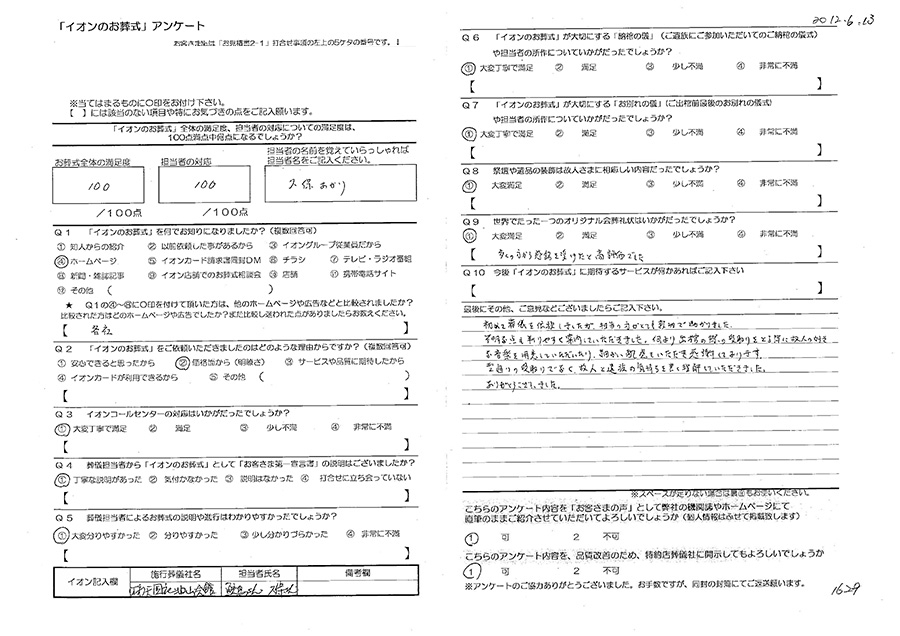 「イオンのお葬式」アンケート
お客さま番号は「お見積書2-1」打合せ事項の左上の5ケタの番号です。！
※当てはまるものに〇印をお付け下さい。
【　】には該当のない項目や特にお気づきの点をご記入願います。
「イオンのお葬式」全体の満足度、担当者の対応についての満足度は、
100点満点中何点になるでしょうか？
お葬式全体の満足度
担当者の対応
担当者の名前を覚えていらっしゃれば
担当者名をご記入ください。
100
100
久保 あかり
／100点
／100点
Q1　「イオンのお葬式」を何でお知りになりましたか？（複数回答可）
① 知人からの紹介　② 以前依頼した事があるから　③ イオングループ従業員だから
④ ホームページ　⑤ イオンカード請求書同封DM　⑥ チラシ　⑦ テレビ・ラジオ番組
⑧ 新聞・雑誌記事　⑨ イオン店舗でのお葬式相談会　⑩ 店頭　⑪ 携帯電話サイト
⑫ その他　（　　　）
★　Q1の④～⑫に〇印を付けて頂いた方は、他のホームページや広告などと比較されましたか？
比較された方はどのホームページや広告でしたか？また比較し迷われた点がありましたらお教えください。
【　各社　】
Q2　「イオンのお葬式」をご依頼いただきましたのはどのような理由からですか？（複数回答可）
① 安心できると思ったから　② 価格面から（明瞭さ）　③ サービスや品質に期待したから
④ イオンカードが利用できるから　⑤ その他　（　　　）
【　　　】
Q3　イオンコールセンターの対応はいかがだったでしょうか？
① 大変丁寧で満足　②　満足　③　少し不満　④　非常に不満
【　　　】
Q4　葬儀担当者から「イオンのお葬式」として「お客さま第一宣言書」の説明はございましたか？
① 丁寧な説明があった　② 気付かなかった　③ 説明はなかった　④ 打合せに立ち会っていない
【　　　】
Q5　葬儀担当者によるお葬式の説明や進行はわかりやすかったでしょうか？
① 大変分りやすかった　② 分りやすかった　③ 少し分かりづらかった　④ 非常に不満
【　　　】
イオン記入欄
施行葬儀社名
担当者氏名
備考欄
2012.6.13
Q6　「イオンのお葬式」が大切にする「納棺の儀」（ご遺族にご参加いただいてのご納棺の儀式）
や担当者の所作についていかがだったでしょうか？
① 大変丁寧で満足　②　満足　③　少し不満　④　非常に不満
【　　　】
Q7　「イオンのお葬式」が大切にする「お別れの儀」（ご出棺前最後のお別れの儀式）
や担当者の所作についていかがだったでしょうか？
① 大変丁寧で満足　②　満足　③　少し不満　④　非常に不満
【　　　】
Q8　祭壇や遺品の装飾は故人さまに相応しい内容だったでしょうか？
①　大変満足　②　満足　③　少し不満　④　非常に不満
【　　　】
Q9　世界でたった一つのオリジナル会葬礼状はいかがだったでしょうか？
①　大変満足　②　満足　③　少し不満　④　非常に不満
【　多くの方から感銘を受けたと高評価でした　】
Q10　今後「イオンのお葬式」に期待するサービスが何かあればご記入下さい
【　　　】
最後にその他、ご意見などございましたらご記入下さい。
初めて葬儀を依頼しましたが、担当の方がとても親切で助かりました。
お音楽を用意していただいたり、細かい配慮をいただき感謝しております。
ありがとうございました。
※スペースが足りない場合は裏面もお使いください。
こちらのアンケート内容を「お客さまの声」として弊社の機関誌やホームページにて
直筆のままご紹介させていただいてよろしいでしょうか（個人情報はふせて掲載致します）
1　可　2　不可
こちらのアンケート内容を、品質改善のため、特約店葬儀社に開示してもよろしいでしょうか
1　可　2　不可
※アンケートのご協力ありがとうございました。お手数ですが、同封の封筒にてご返送願います。
1629